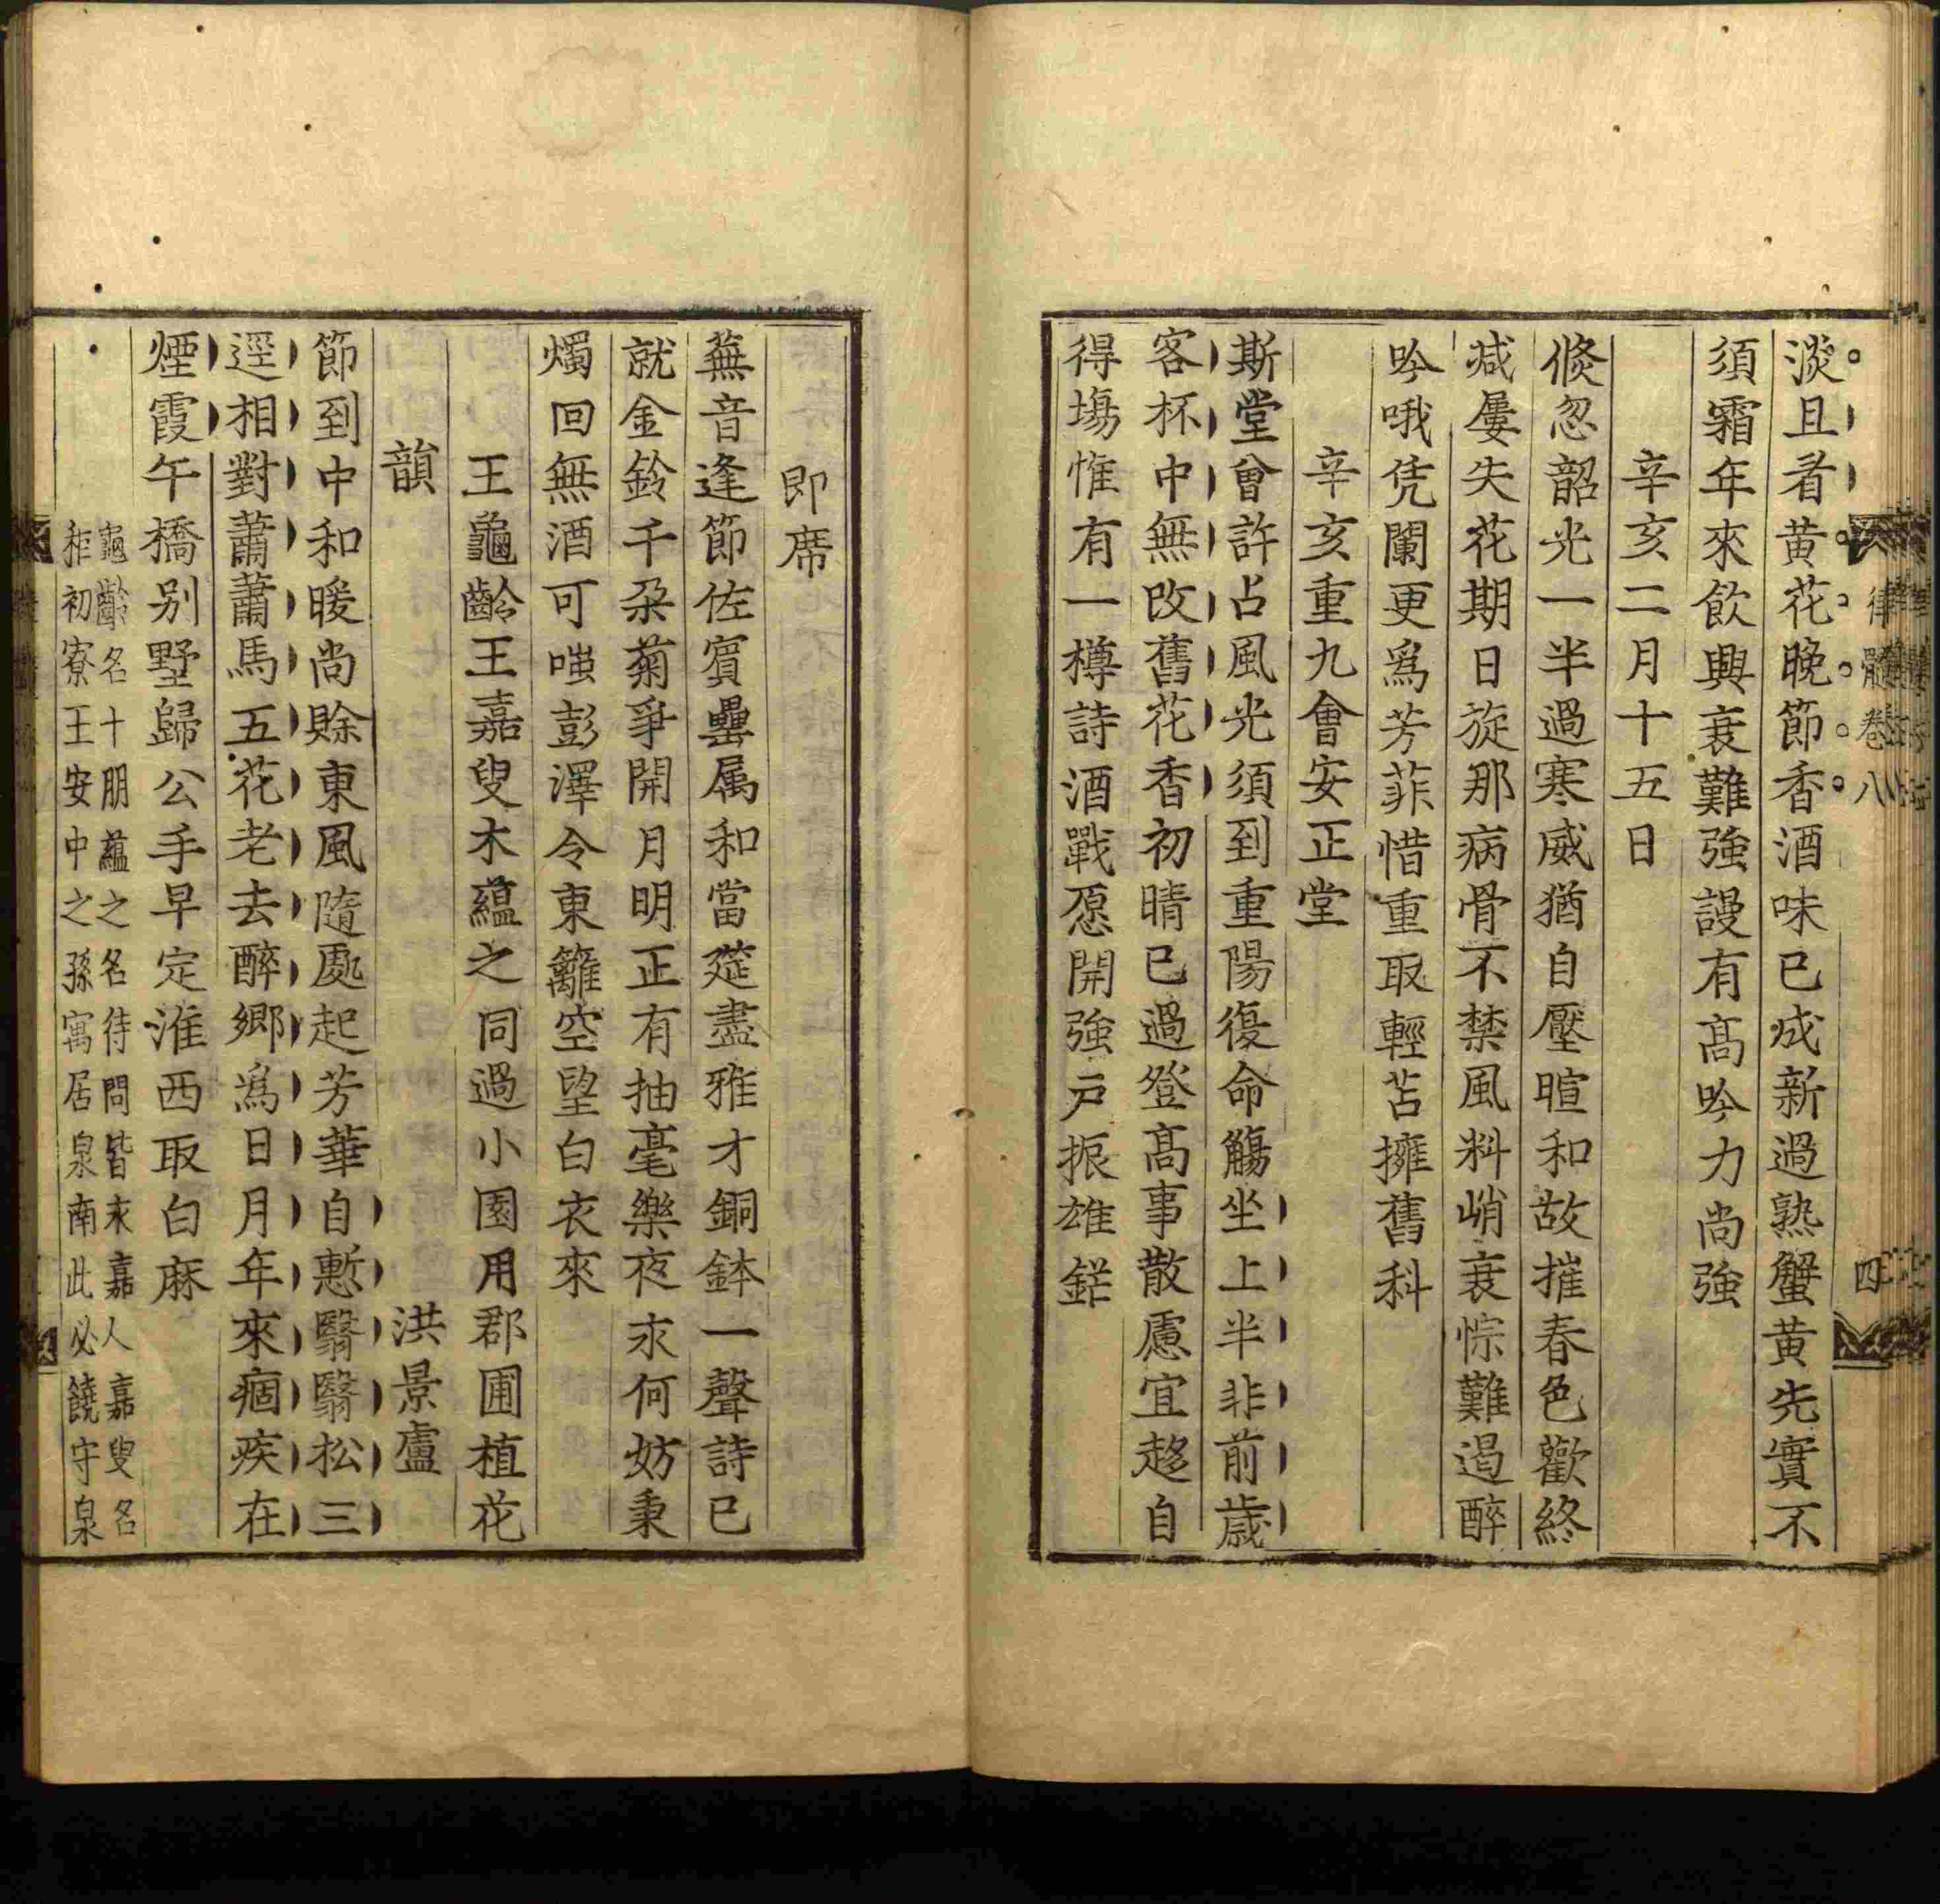 律髓卷八
四
淡且看黄花晚節香酒味已成新過熟蟹黄先實不
須霜年來飲興衰難強謾有髙吟力尚強
辛亥二月十五日
倐忽韶光一半過寒威猶自壓暄和故摧春色歡終
减屢失花期日旋那病骨不禁風料峭衰悰難遏醉
吟哦凭闌更爲芳菲惜重取輕苫擁舊科
辛亥重九會安正堂
斯堂曾許占風光須到重陽復命觴坐上半非前歳
客杯中無改舊花香初晴已過登髙事散慮宜趍自
得塲惟有一樽詩酒戰愿開強戸振雄鋩
即席
蕪音逢節佐賔罍属和當筵盡雅才銅鉢一聲詩已
就金鈴千朶菊爭開月明正有抽毫樂夜永何妨秉
燭回無酒可嗤彭澤令東籬空望白衣來
王龜齡王嘉叟木藴之同過小園用郡圃植花
韻 洪景盧
節到中和暖尚賖東風隨處起芳華自慙翳翳松三
逕相對蕭蕭馬五花老去醉鄉爲日月年來痼疾在
煙霞午橋别墅歸公手早定淮西取白麻
龜齡名十朋藴之名待問皆永嘉人嘉叟名
秬初寮王安中之孫寓居泉南此必饒守泉